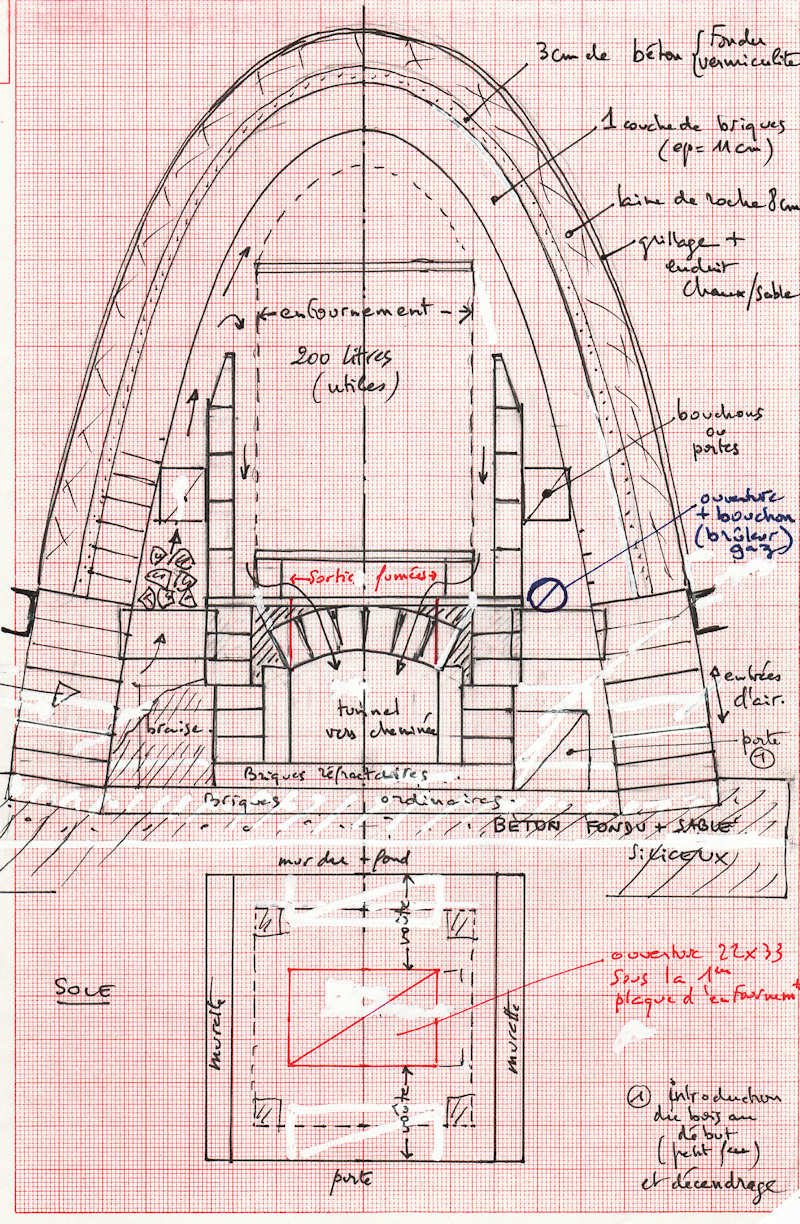 3cm de béton { Fondu
vermiculite
1 couche de briques
(ep = 11 cm)
laine de roche 8cm
grillage +
enduit
chaux/sable
← enfournement →
200 litres
(utiles)
bouchons
ou
portes
ouverture
+ bouchon
(brûleur)
gaz
← Sortie fumées →
entrées
d'air.
tunnel
vers cheminée
braise.
porte
①
Briques réfractaires
Briques ordinaires.
BÉTON FONDU + SABLE
SILICEUX
mur du fond
voûte
ouverture 22x33
sous la 1ère
plaque d'enfournemt
SOLE
murette
murette
voûte
① introduction
du bois au
début
(petit feu)
et décendrage
porte